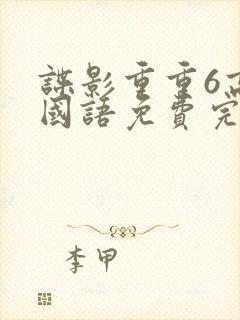 諜影重重6高
國語免費完
李甲